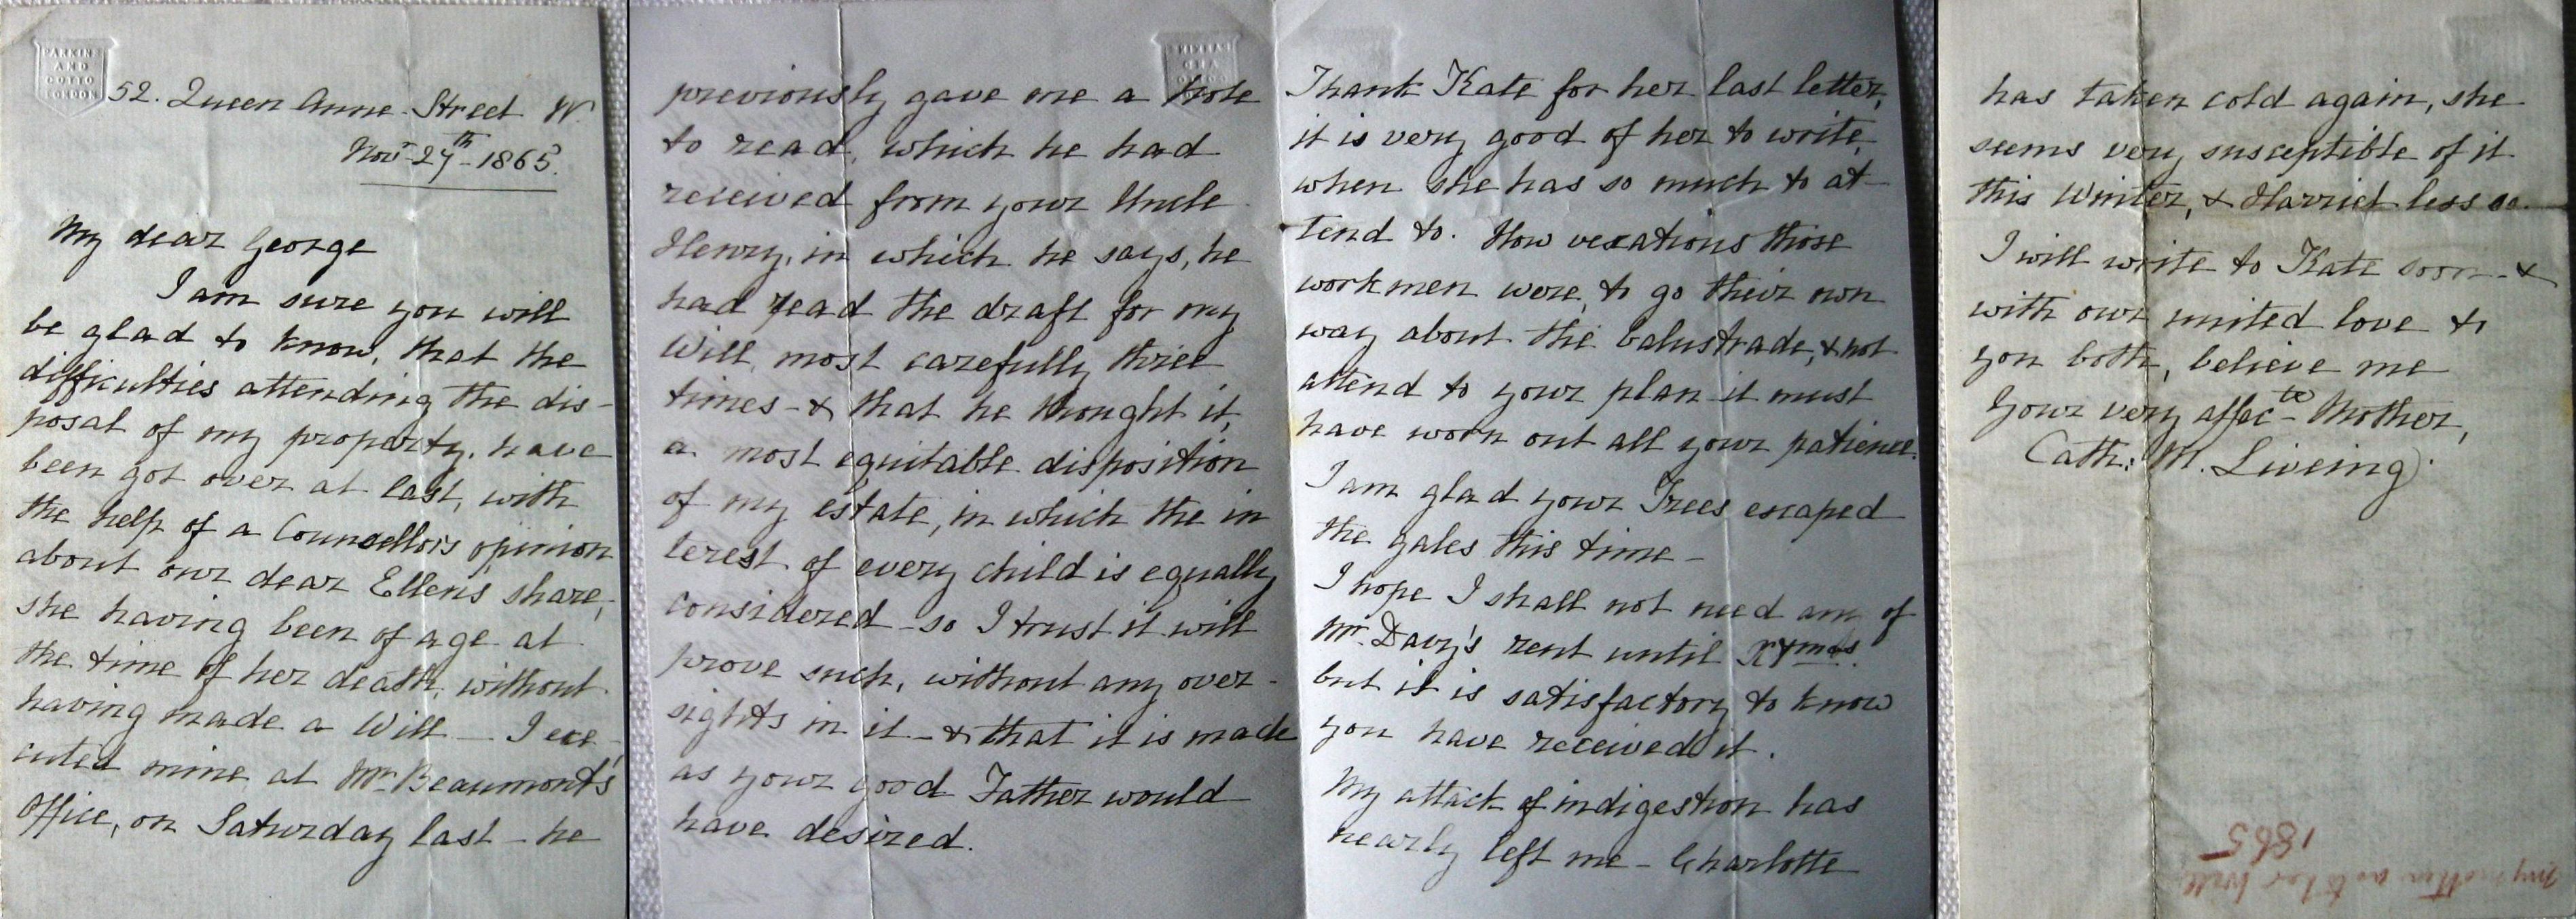 PARKINS
AND
GOTTO
LONDON
52. Queen Anne Street W.
Novr 27th 1865.
My dear George
I am sure you will
be glad to know, that the
difficulties attending the dis-
posal of my property, have
been got over at last, with
the help of a Counsellor's opinion
about our dear Ellen's share,
she having been of age at
the time of her death, without
having made a Will — I exe-
cuted mine at Mr Beaumont's
Office, on Saturday last - he
previously gave me a Note
to read, which he had
received from your Uncle
Henry, in which he says, he
had read the draft for my
Will, most carefully three
times - & that he thought it,
a most equitable disposition
of my estate, in which the in
terest of every child is equally
considered - so I trust it will
prove such, without any over-
sights in it - & that it is made
as your good Father would
have desired.
Thank Kate for her last letter,
it is very good of her to write,
when she has so much to at-
tend to. How vexatious those
workmen were, to go their own
way about the balustrade, & not
attend to your plan - it must
have worn out all your patience.
I am glad your Trees escaped
the gales this time -
I hope I shall not need any of
Mr Davy's rent until Xtmas.
but it is satisfactory to know
you have received it.
My attack of indigestion has
nearly left me - Charlotte
has taken cold again, she
seems very susceptible of it
this Winter, & Harriet less so.
I will write to Kate soon - &
with our united love to
you both, believe me
Your very affecte Mother,
Cath: M. Liveing.
my mother as to her Will
1865